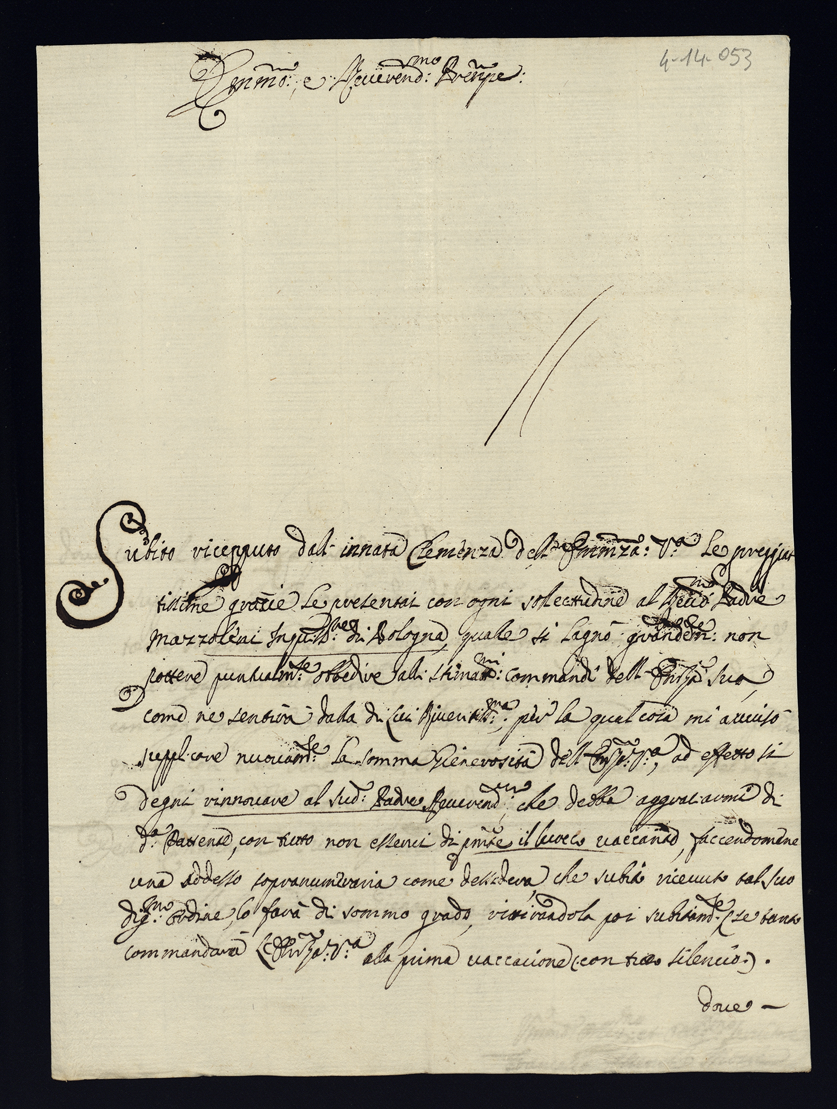 4-14-053
Emmo: e Reverendmo: Prenpe:
Subito riceputo dall innata Clemenza dell Emmza: Va Le preggiat
tissime gracie Le presentai con ogni sollecitudine al Padre
Mazzoleni Inquisre: di Bologna, quale si lagnò grandemte: non
pottere puntualmte obbedire alli stimatmi: commandi dell Sua,
come ne sentirà dalla di Lui Riverentissma:, per la qual cosa mi avvisò
supplicare nuovamte: la somma Gienerosità dell Va, ad effetto si
degni rinnovare al sudo: Padre Reverendmo:, che debba aggratiarmi di
da Pattente, con tutto non esservi di pnte il luoco vaccante, faccendomene
una addesso sopranumeraria come dessidera che subito ricevuto tal suo
digmo: ordine, lo farà di sommo grado, rittirandola poi subitamte (se tanto
commandarà Va alla prima vaccacione (con tutto silencio:).
dove -